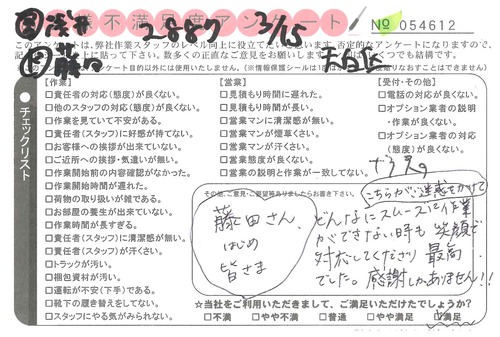 営浅井 2887 3/15
お客様不満足度アンケート
№ 054612
このアンケートは、弊社作業スタッフのレベル向上に役立てたいと思います。否定的なアンケートになりますので、
千白区
藤田
【作業】
□責任者の対応(態度)が良くない。
□他のスタッフの対応(態度)が良くない。
□作業を見ていて不安がある。
□責任者(スタッフ)に好感が持てない。
□お客様への挨拶が出来ていない。
□ご近所への挨拶・気遣いが無い。
□作業開始前の内容確認がなかった。
□作業開始時間が遅れた。
□荷物の取り扱いが雑である。
□お部屋の養生が出来ていない。
□作業時間が長すぎる。
□責任者(スタッフ)に清潔感が無い。
□責任者(スタッフ)が汗くさい。
□トラックが汚い。
□梱包資材が汚い。
□運転が不安(下手)である。
□靴下の履き替えをしてない。
□スタッフにやる気がみられない。
【営業】
□見積もり時間に遅れた。
□見積もり時間が長い。
□営業マンに清潔感が無い。
□営業マンが煙草くさい。
□営業マンが汗くさい。
□営業態度が良くない。
□営業の説明と作業が一致してない。
【受付・その他】
□電話の対応が良くない。
□オプション業者の説明
・作業が良くない。
□オプション業者の対応
(態度)が良くない。
●チェックリスト
その他、ご意見・ご要望等ありましたらお書き下さい。
藤田さん、
はじめ
皆さま
こちらがご迷惑をかけて
どんなにスムーズに作業
ができない時も 笑顔で
対応してくださり 最高
でした。感謝しかありません!!
☆当社をご利用いただきまして、ご満足いただけたでしょうか?
□不満 □やや不満 □普通 □やや満足 □満足